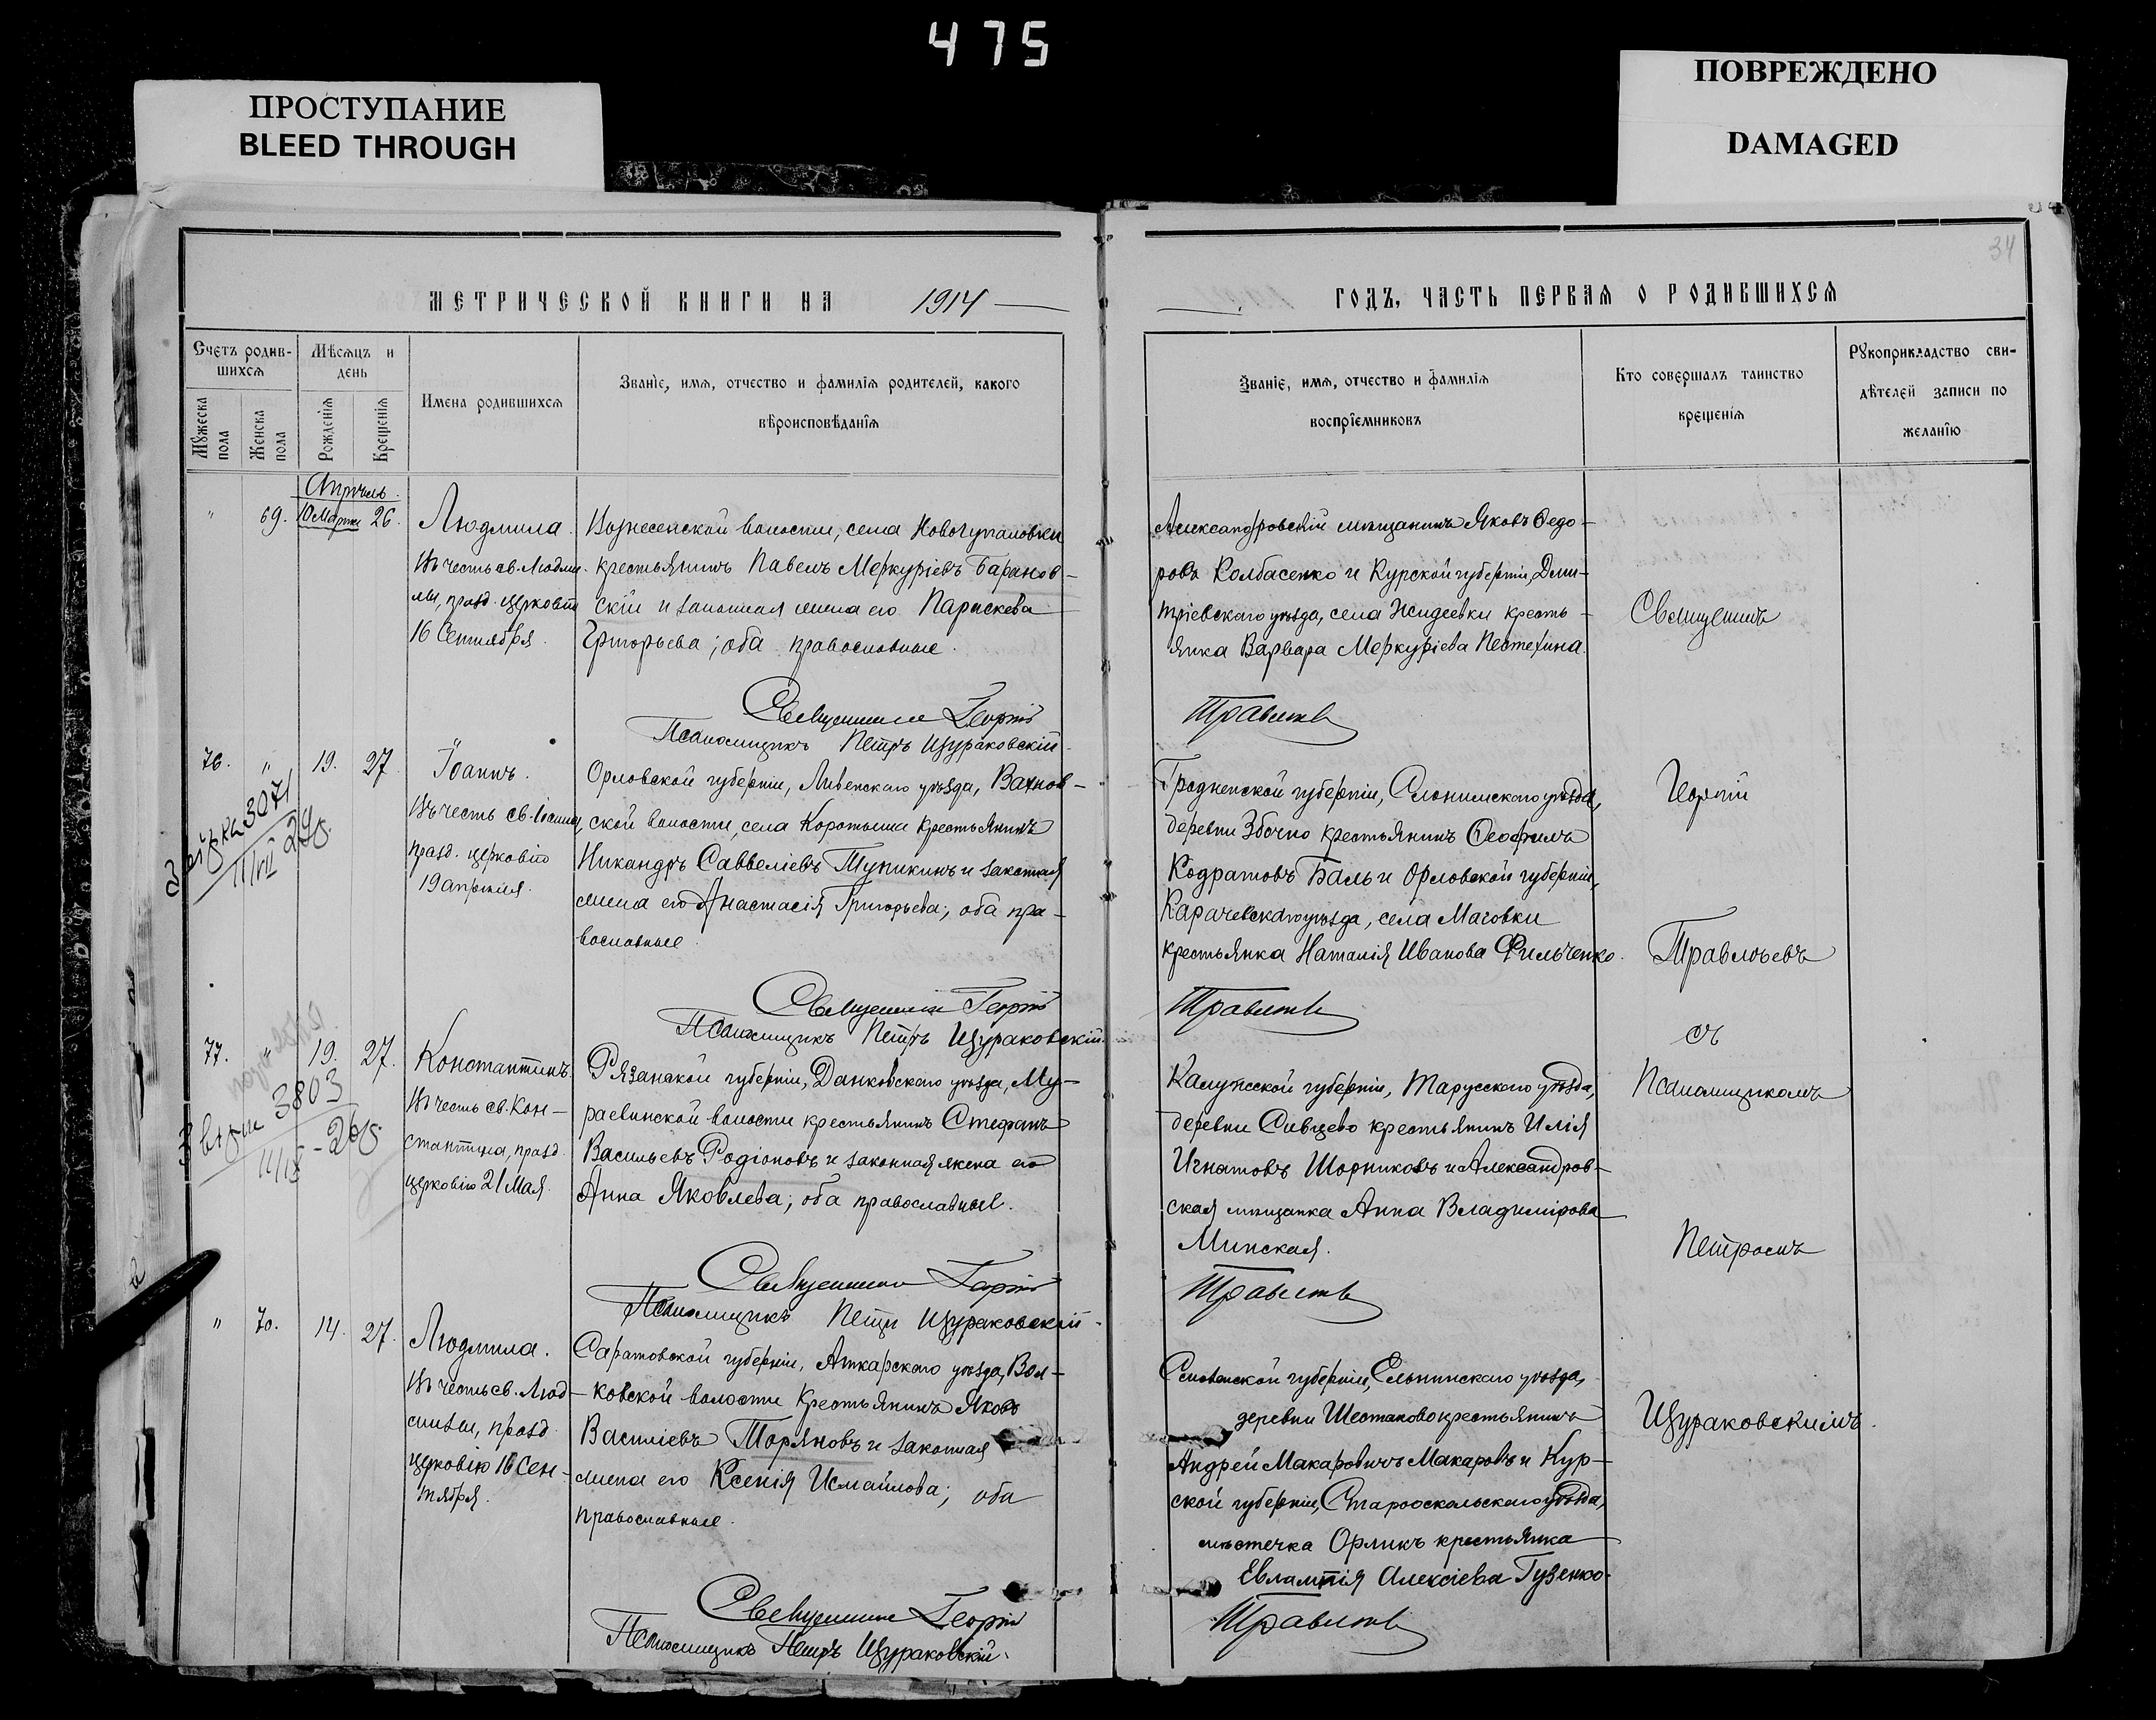 475
ПРОСТУПАНИЕ
BLEED THROUGH
ПОВРЕЖДЕНО
DAMAGED
34
МЕТРИЧЕСКОЙ КНИГИ НА 1914
ГОДЪ, ЧАСТЬ ПЕРВАЯ О РОДИВШИХСЯ
Счетъ родив-
шихся
Мужеска пола
Женска пола
Мѣсяцъ и
день
Рожденія
Крещенія
Имена родившихся
Званіе, имя, отчество и фамилія родителей, какого
вѣроисповѣданія
Званіе, имя, отчество и фамилія
воспріемниковъ
Кто совершалъ таинство
крещенія
Рукоприкладство сви-
дѣтелей записи по
желанію
Апрѣль
" 69. 10 Марта 26.
Людмила.
Въ честь св. Людми-
лы, празд. церковію
16 Сентября.
Вознесенской волости, села Новогупаловки
крестьянинъ Павелъ Меркуріевъ Баранов-
скій и законная жена его Параскева
Григорьева; оба православные.
Священникъ Георгій
Псаломщикъ Петръ Щураковскій
Александровскій мѣщанинъ Яковъ Ѳедо-
ровъ Колбасенко и Курской губерніи, Дми-
тріевскаго уѣзда, села Жидеевки кресть-
янка Варвара Меркуріева Пестехина.
Травлѣевъ
76. " 19. 27.
Іоаннъ.
Въ честь св. Іоанна,
празд. церковію
19 апрѣля.
Орловской губерніи, Ливенскаго уѣзда, Вахнов-
ской волости, села Коротыши крестьянинъ
Никандръ Саввеліевъ Тупикинъ и законная
жена его Анастасія Григорьева; оба пра-
вославные.
Священникъ Георгій
Псаломщикъ Петръ Щураковскій
3071
Гродненской губерніи, Слонимскаго уѣзда,
деревни Збочно крестьянинъ Ѳеофилъ
Кодратовъ Баль и Орловской губерніи,
Карачевскаго уѣзда, села Маговки
крестьянка Наталія Иванова Фильченко.
Травлѣевъ
77. " 19. 27.
Константинъ.
Въ честь св. Кон-
стантина, празд.
церковію 21 Мая.
Рязанской губерніи, Данковскаго уѣзда, Му-
раевинской волости крестьянинъ Стефанъ
Васильевъ Родіоновъ и законная жена его
Анна Яковлева; оба православные.
Священникъ Георгій
Псаломщикъ Петръ Щураковскій
3803
Калужской губерніи, Тарусскаго уѣзда,
деревни Сивцево крестьянинъ Илія
Игнатовъ Шорниковъ и Александров-
ская мѣщанка Анна Владимірова
Минская.
Травлѣевъ
" 70. 14. 27.
Людмила.
Въ честь св. Люд-
милы, празд.
церковію 16 Сен-
тября.
Саратовской губерніи, Аткарскаго уѣзда, Вол-
ковской волости крестьянинъ Яковъ
Василіевъ Торяновъ и законная
жена его Ксенія Исмаилова; оба
православные.
Священникъ Георгій
Псаломщикъ Петръ Щураковскій.
Смоленской губерніи, Ельнинскаго уѣзда,
деревни Шестаково крестьянинъ
Андрей Макаровичъ Макаровъ и Кур-
ской губерніи, Старооскольскаго уѣзда,
мѣстечка Орликъ крестьянка
Евлампія Алексіева Гузенко.
Травлѣевъ
Священникъ
Георгій
Травлѣевъ
съ
Псаломщикомъ
Петромъ
Щураковскимъ.